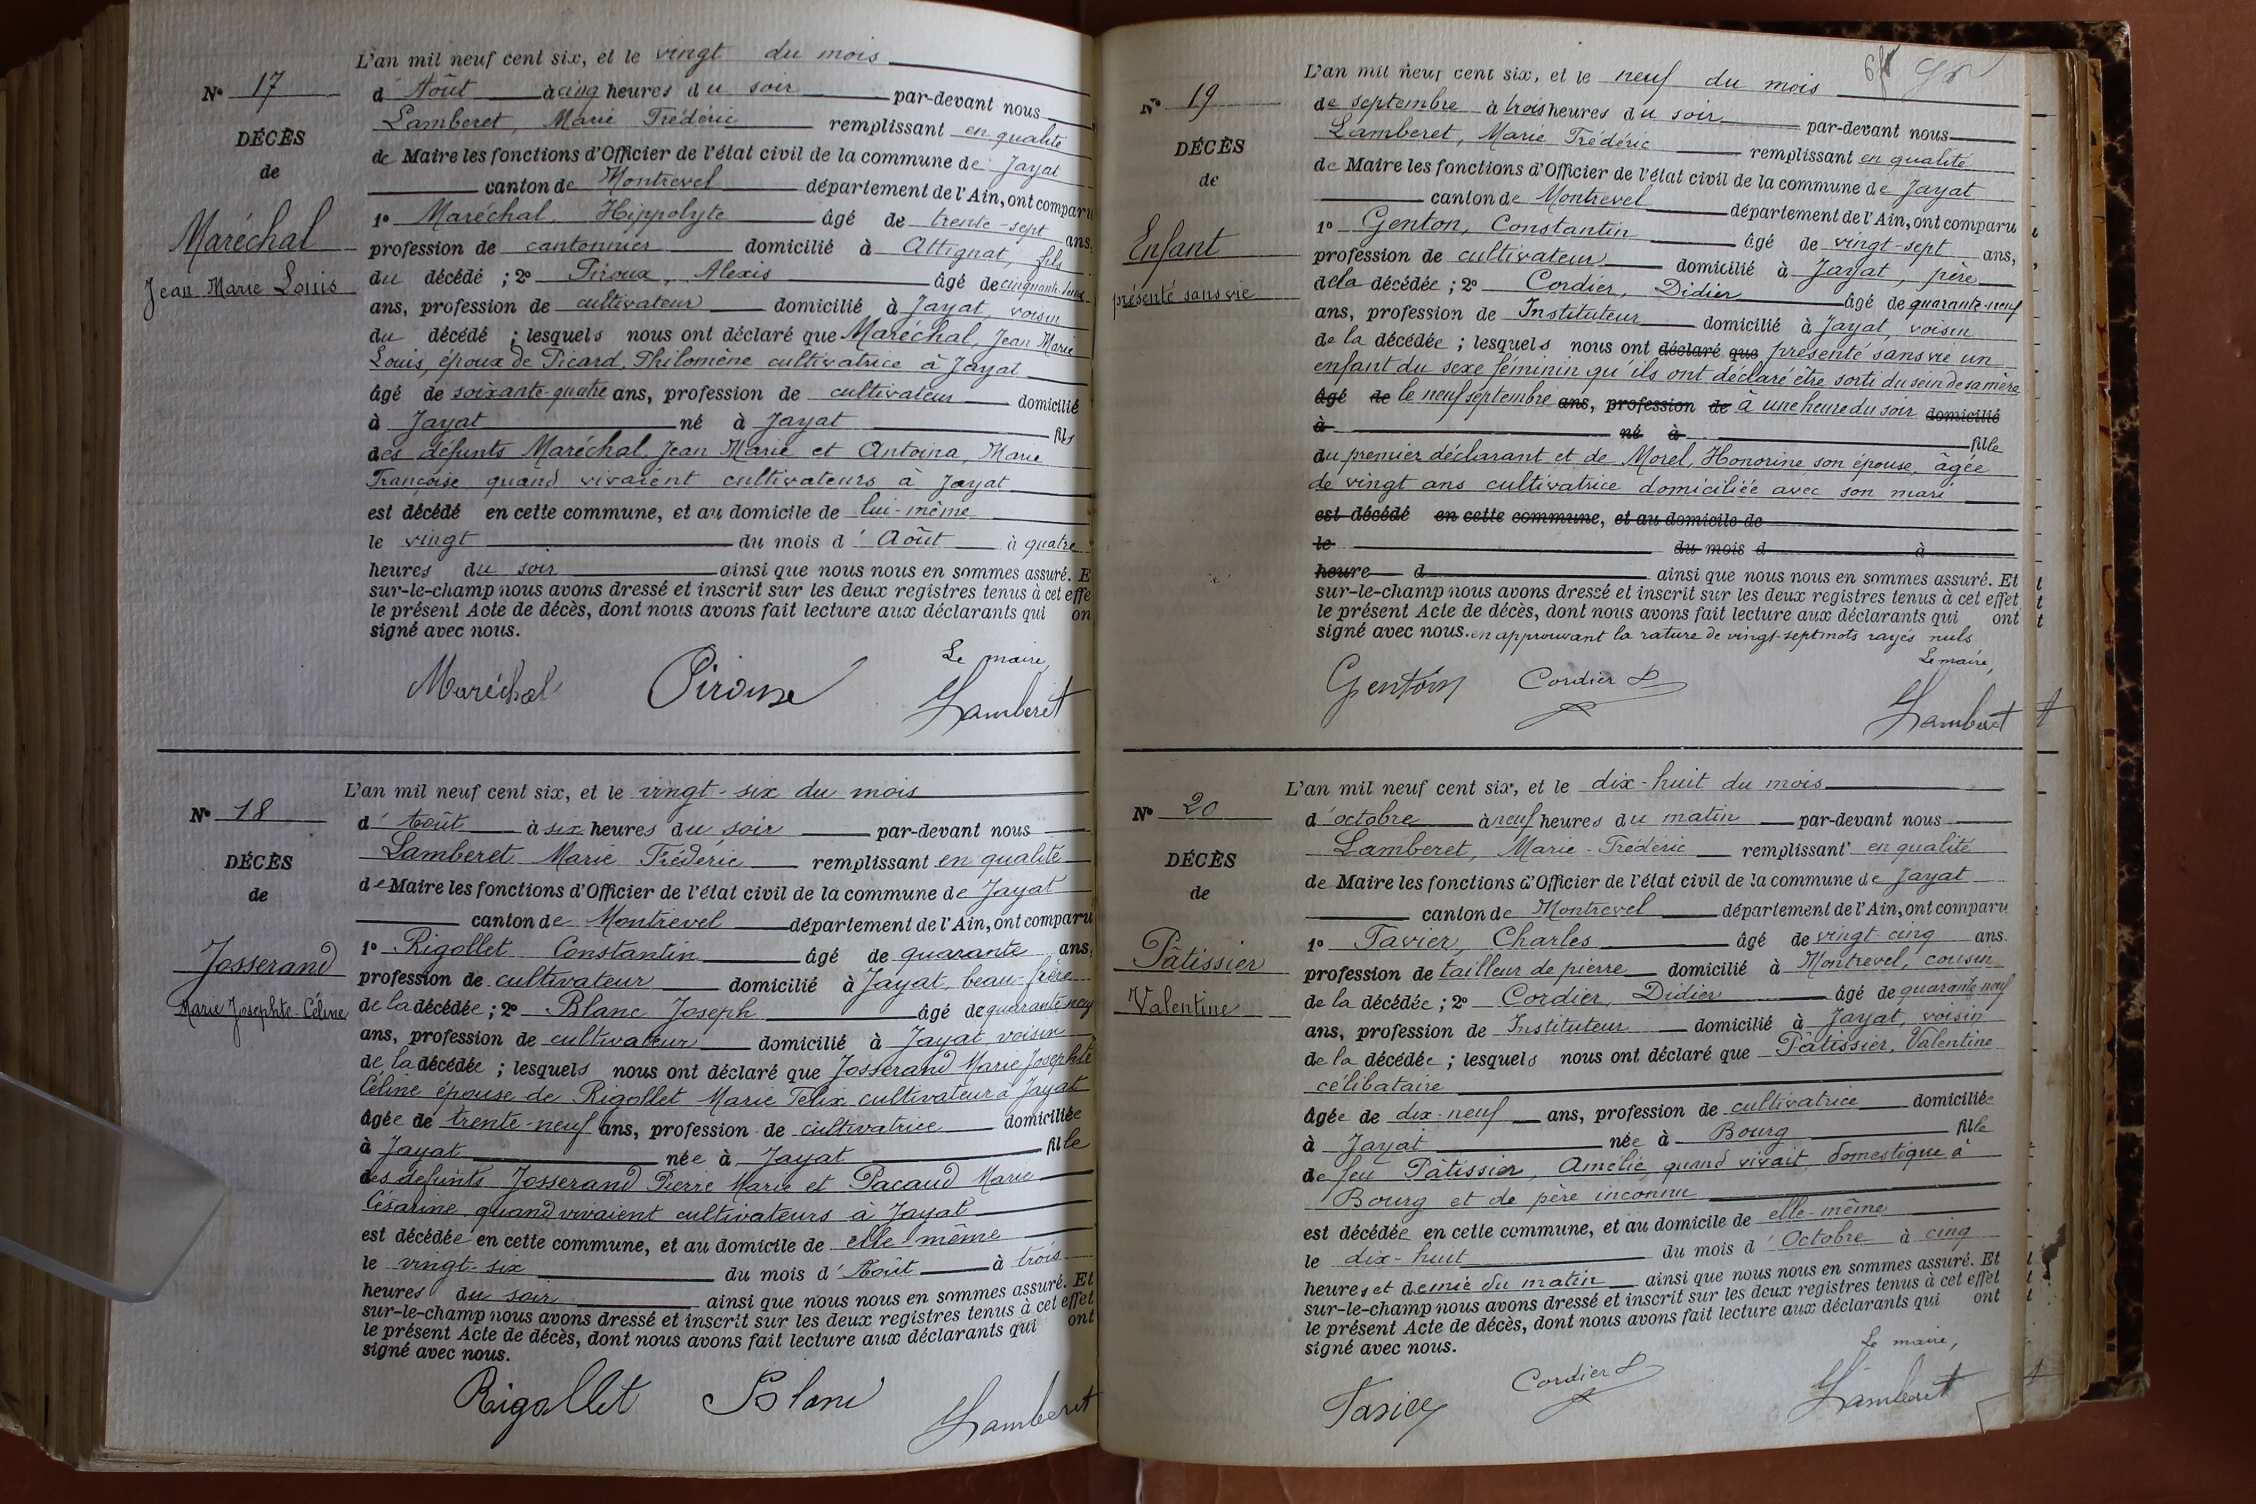 N° 17
DÉCÈS
de
Maréchal
Jean Marie Louis
L'an mil neuf cent six, et le vingt du mois
d'Août à cinq heures du soir par-devant nous
Lamberet, Marie Frédéric remplissant en qualité
de Maire les fonctions d'Officier de l'état civil de la commune de Jayat
canton de Montrevel département de l'Ain, ont comparu
1° Maréchal Hippolyte âgé de trente-sept ans,
profession de cantonnier domicilié à Attignat, fils
du décédé ; 2° Piroux, Alexis âgé de cinquante
ans, profession de cultivateur domicilié à Jayat, voisin
du décédé ; lesquels nous ont déclaré que Maréchal, Jean Marie
Louis, époux de Picard, Philomène cultivatrice à Jayat
âgé de soixante-quatre ans, profession de cultivateur domicilié
à Jayat né à Jayat fils
des défunts Maréchal, Jean Marie et Antoina, Marie
Françoise quand vivaient cultivateurs à Jayat
est décédé en cette commune, et au domicile de lui-même
le vingt du mois d'Août à quatre
heures du soir ainsi que nous nous en sommes assuré. E
sur-le-champ nous avons dressé et inscrit sur les deux registres tenus à cet effe
le présent Acte de décès, dont nous avons fait lecture aux déclarants qui on
signé avec nous.
Le maire,
Maréchal Piroux Lamberet
N° 18
DÉCÈS
de
Josserand
Marie Josephte-Céline
L'an mil neuf cent six, et le vingt-six du mois
d'Août à six heures du soir par-devant nous
Lamberet Marie Frédéric remplissant en qualité
de Maire les fonctions d'Officier de l'état civil de la commune de Jayat
canton de Montrevel département de l'Ain, ont comparu
1° Rigollet Constantin âgé de quarante ans,
profession de cultivateur domicilié à Jayat, beau-frère
de la décédée ; 2° Blanc Joseph âgé de quarante neuf
ans, profession de cultivateur domicilié à Jayat voisin
de la décédée ; lesquels nous ont déclaré que Josserand Marie Josephte
Céline épouse de Rigollet Marie Félix cultivateur à Jayat
âgée de trente-neuf ans, profession de cultivatrice domiciliée
à Jayat née à Jayat fille
des défunts Josserand Pierre Marie et Pacaud Marie
Césarine quand vivaient cultivateurs à Jayat
est décédée en cette commune, et au domicile de elle même
le vingt-six du mois d'Août à trois
heures du soir ainsi que nous nous en sommes assuré. Et
sur-le-champ nous avons dressé et inscrit sur les deux registres tenus à cet effet
le présent Acte de décès, dont nous avons fait lecture aux déclarants qui ont
signé avec nous.
Rigollet Blanc Lamberet
N° 19
DÉCÈS
de
Enfant
présenté sans vie
L'an mil neuf cent six, et le neuf du mois
de septembre à trois heures du soir par-devant nous
Lamberet, Marie Frédéric remplissant en qualité
de Maire les fonctions d'Officier de l'état civil de la commune de Jayat
canton de Montrevel département de l'Ain, ont comparu
1° Genton, Constantin âgé de vingt-sept ans,
profession de cultivateur domicilié à Jayat, père
de la décédée ; 2° Cordier, Didier âgé de quarante-neuf
ans, profession de Instituteur domicilié à Jayat, voisin
de la décédée ; lesquels nous ont déclaré que présenté sans vie un
enfant du sexe féminin qu'ils ont déclaré être sorti du sein de sa mère
âgé de le neuf septembre ans, profession de à une heure du soir domicilié
à né à fille
du premier déclarant et de Morel, Honorine son épouse, âgée
de vingt ans cultivatrice domiciliée avec son mari
est décédé en cette commune, et au domicile de
le du mois d à
heure d ainsi que nous nous en sommes assuré. Et
sur-le-champ nous avons dressé et inscrit sur les deux registres tenus à cet effet
le présent Acte de décès, dont nous avons fait lecture aux déclarants qui ont
signé avec nous. en approuvant la rature de vingt-sept mots rayés nuls
Le maire,
Genton Cordier D Lamberet
N° 20
DÉCÈS
de
Pâtissier
Valentine
L'an mil neuf cent six, et le dix-huit du mois
d'octobre à neuf heures du matin par-devant nous
Lamberet, Marie-Frédéric remplissant en qualité
de Maire les fonctions d'Officier de l'état civil de la commune de Jayat
canton de Montrevel département de l'Ain, ont comparu
1° Favier, Charles âgé de vingt-cinq ans.
profession de tailleur de pierre domicilié à Montrevel, cousin
de la décédée ; 2° Cordier, Didier âgé de quarante-neuf
ans, profession de Instituteur domicilié à Jayat, voisin
de la décédée ; lesquels nous ont déclaré que Pâtissier, Valentine
célibataire
âgée de dix-neuf ans, profession de cultivatrice domiciliée
à Jayat née à Bourg fille
de feu Pâtissier, Amélie, quand vivait, domestique à
Bourg et de père inconnu
est décédée en cette commune, et au domicile de elle-même
le dix-huit du mois d'Octobre à cinq
heures et demie du matin ainsi que nous nous en sommes assuré. Et
sur-le-champ nous avons dressé et inscrit sur les deux registres tenus à cet effet
le présent Acte de décès, dont nous avons fait lecture aux déclarants qui ont
signé avec nous.
Le maire,
Favier Cordier D Lamberet